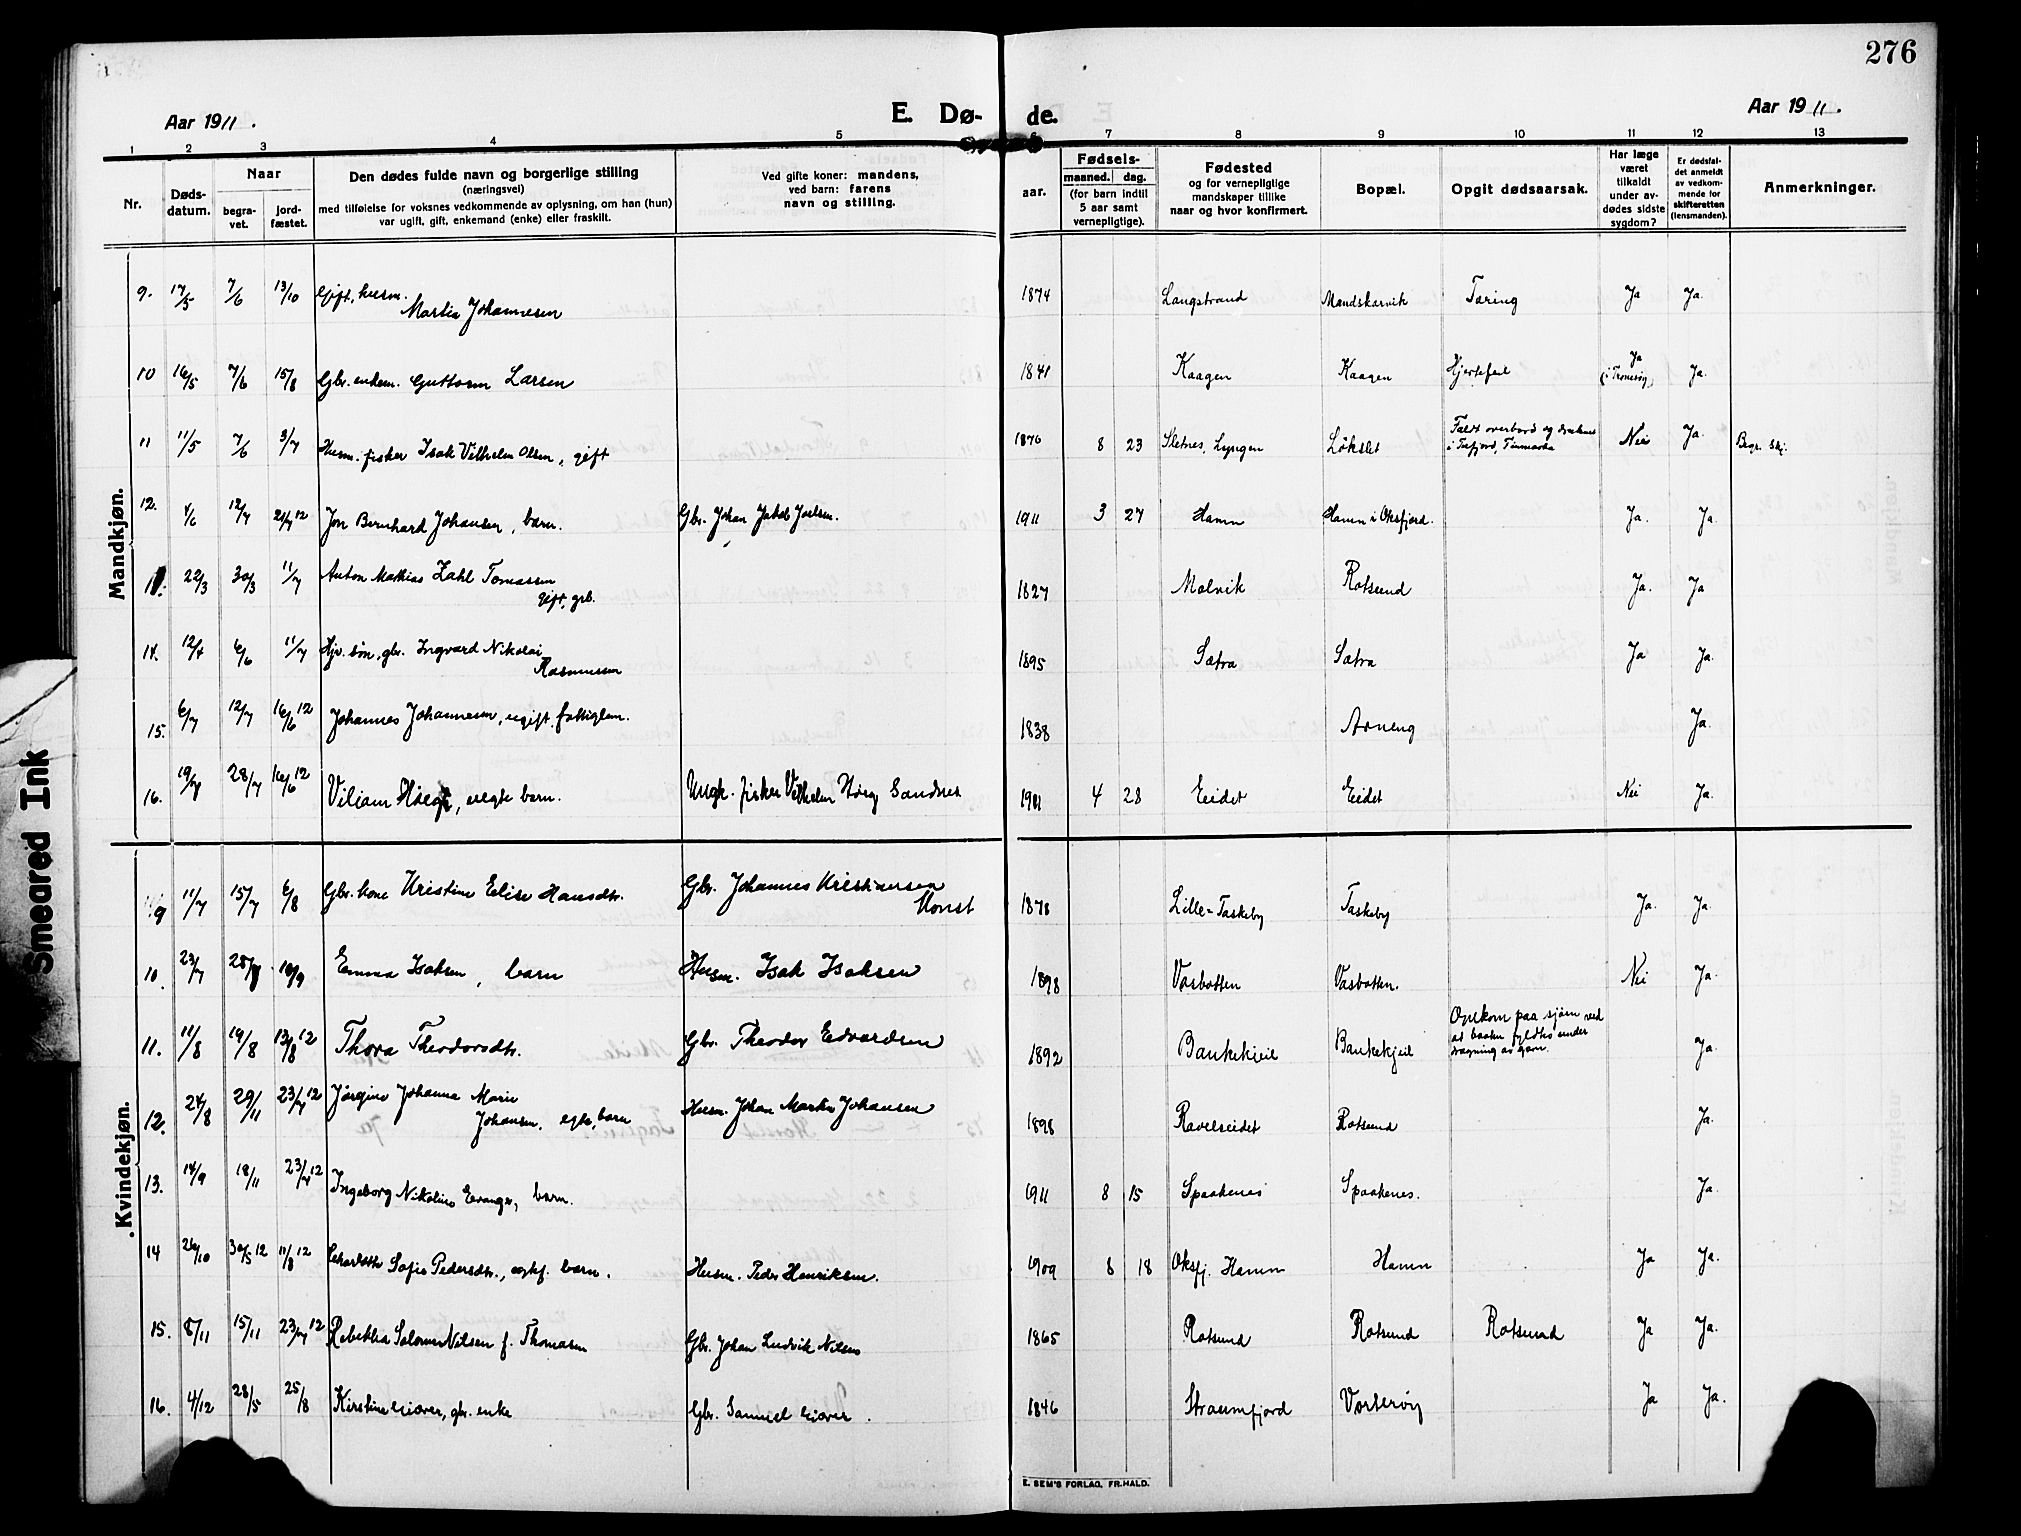 276
Aar 1911.
E. Dø- de.
Aar 1911.
1 2 3 4 5 6 7 8 9 10 11 12 13
Nr.
Døds-
datum.
Naar
begra-
vet.
jord-
fæstet.
Den dødes fulde navn og borgerlige stilling
(næringsvei)
med tilføielse for voksnes vedkommende av oplysning, om han (hun)
var ugift, gift, enkemand (enke) eller fraskilt.
Ved gifte koner: mandens,
ved barn: farens
navn og stilling.
aar.
Fødsels-
maaned. dag.
(for barn indtil
5 aar samt
vernepligtige).
Fødested
og for vernepligtige
mandskaper tillike
naar og hvor konfirmert.
Bopæl.
Opgit dødsaarsak.
Har læge
været
tilkaldt
under av-
dødes sidste
sygdom?
Er dødsfal-
det anmeldt
av vedkom-
mende for
skifteretten
(lensmanden).
Anmerkninger.
Mandkjøn.
9. 17/5 7/6 13/10 Gift, husm. Martin Johannesen 1874 Langstrand Mandskarvik Tæring Ja Ja.
10 16/5 7/6 15/8 Gbr. enkem. Guttorm Larsen 1841 Kaagen Kaagen Hjertefeil Ja (i Tromsø) Ja.
11 11/5 7/6 3/7 Husm. fisker Isak Vilhelm Olsen, gift 1876 8 23 Sletnes, Lyngen Løkslet Faldt overbord og druknet i Tufjord, Finmarken Nei Ja. Begr. Skj.
12. 4/6 12/7 21/7 12 Jon Bernhard Johansen, barn. Gbr. Johan Jakob Joelsen. 1911 3 27 Hamn Hamn i Oksfjord. Ja. Ja.
22/3 30/3 11/7 Anton Mathias Zahl Tomassen gift, grb. 1827 Malvik Rotsund Ja. Ja
14. 12/4 6/6 11/7 Hjv. søn, gbr. Ingvard Nikolai Rasmussen 1895 Sætra Sætra Ja Ja.
15. 6/7 12/7 16/6 12 Johannes Johannesen, ugift fattiglem. 1838 Arneng Ja.
16. 19/7 28/7 16/6 12 Viliam Høegh, uegte barn. Ungk. fisker Vilhelm Høeg Sandnes 1911 4 28 Eidet Eidet Nei Ja.
Kvindekjøn.
9 11/7 15/7 6/8 Gbr. kone Kristine Elise Hansdtr. Gbr. Johannes Kristiansen Konst 1878 Lille-Taskeby Taskeby Ja. Ja.
10. 23/7 28/7 10/9 Emma Isaksen, barn Husm. Isak Isaksen 1898 Vasbotten Vasbotten. Nei Ja.
11. 11/8 19/8 13/8 12 Thora Theodorsdtr. Gbr. Theodor Edvardsen 1892 Bankekjeil Bankekjeil Omkom paa sjøen ved at baaten fyldtes under dragning av garn. Ja.
12. 24/8 29/11 23/4 12 Jørgine Johanna Marie Johansen, egte, barn Husm. Johan Martin Johansen 1898 Ravelseidet Rotsund Ja.
13. 14/9 18/11 23/4 12 Ingeborg Nikoline Evanger, barn. 1911 8 15 Spaakenes Spaakenes. Ja.
14 26/10 30/5 12 11/8 12 Charlotte Sofie Pedersdtr., barn. Husm. Peder Henriksen. 1909 8 18 Oksfj. Hamn Hamn Ja Ja.
15. 8/11 15/11 23/4 12 Rebekka Salome Nilsen f. Thomasen Gbr. Johan Ludvik Nilsen 1865 Rotsund Rotsund Rotsund Ja Ja.
16. 4/12 28/5 25/8 Kirstine Giæver, gbr. enke Gbr. Samuel Giæver. 1846 Straumfjord Vorterøy Ja Ja.
E. SEM'S FORLAG, FR.HALD.
Smeared Ink